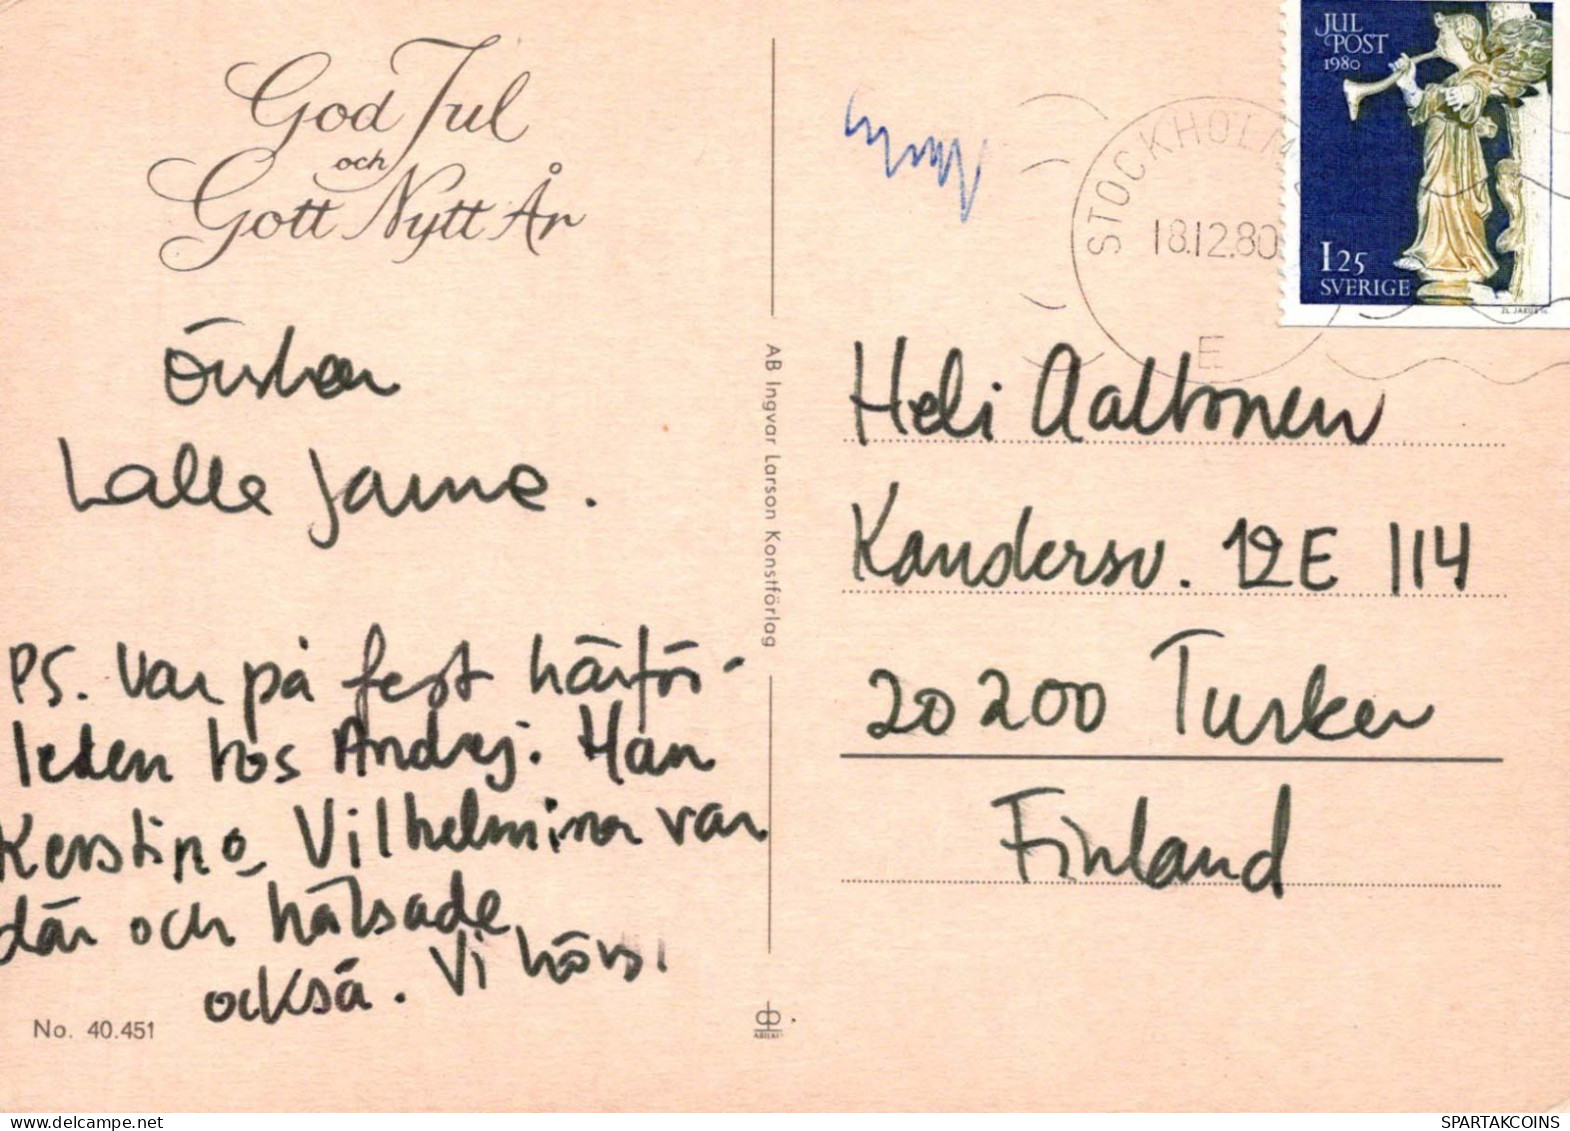 God Jul
och
Gott Nytt År
önskar
Lalle Janne.
PS. Var på fest härför-
leden hos Andrej. Han
Kerstin o Vilhelmina var
där och hälsade
också. Vi hörs!
No. 40.451
AB Ingvar Larson Konstförlag
STOCKHOLM
18.12.80
E
JUL
POST
1980
1 25
SVERIGE
Heli Aaltonen
Kandersv. 12E 114
20200 Turken
Finland
SPARTAKCOINS